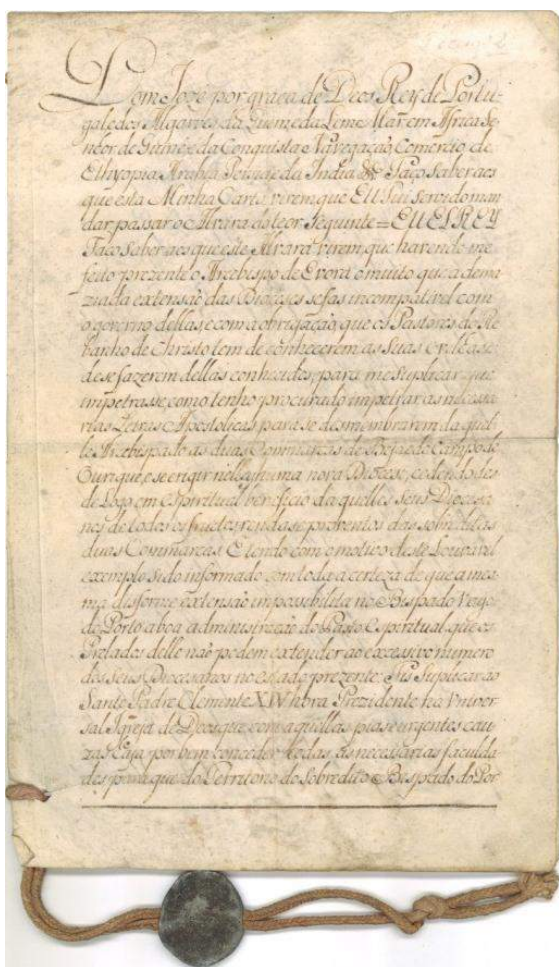 Dom Joze por graça de Deos Rey de Portu-
gal e dos Algarves da quem e da Lem e Mar, em Africa Se-
nhor de Guiné, e da Conquista Navegação, Comercio de
Ethyopia Arabia Persia, e da India &c. Faço Saber aos
que esta Minha Carta virem que EU Fui Servido man
dar passar o Alvará do teor Seguinte = EU ELREY
Faço Saber aos que este Alvará virem, que havendo-me
feito prezente o Arcebispo de Evora o muito que a dema
ziada extensão das Dioceses se fas incompativel com
o governo dellas, e com a obrigação, que os Pastores do Re
banho de Christo tem de conhecerem as Suas Ovelhas e
de se fazerem dellas conhecidos, para me Suplicar que
impetrasse como tenho procurado impetrar as necessa
rias Letras Apostolicas para se desmembrarem da quel
le Arcebispado as duas Commarcas de Beja e do Campo de
Ourique, e se erigir nellas huma nova Diocese, cedendo des
de Logo em espiritual beneficio da quelles seus Diocesa
nos de todos os fructos rendas e proventos das sobreditas
duas Commarcas. E tendo com o motivo deste Louvavel
exemplo Sido informado com toda a certeza de que a mes
ma disforme extensão impossibilita no Bispado
do Porto a boa administração do Pasto Espiritual que os
Prelados delle não podem extender ao excesivo numero
dos seus Diocesanos no estado prezente: Fis Suplicar ao
Santo Padre Clemente XIV hora Prezidente na Univer
sal Igreja de Deos que com aquellas pias e urgentes cau
zas haja por bem conceder todas as necessarias faculda
des para que do Territorio do Sobredito Bispado do Por